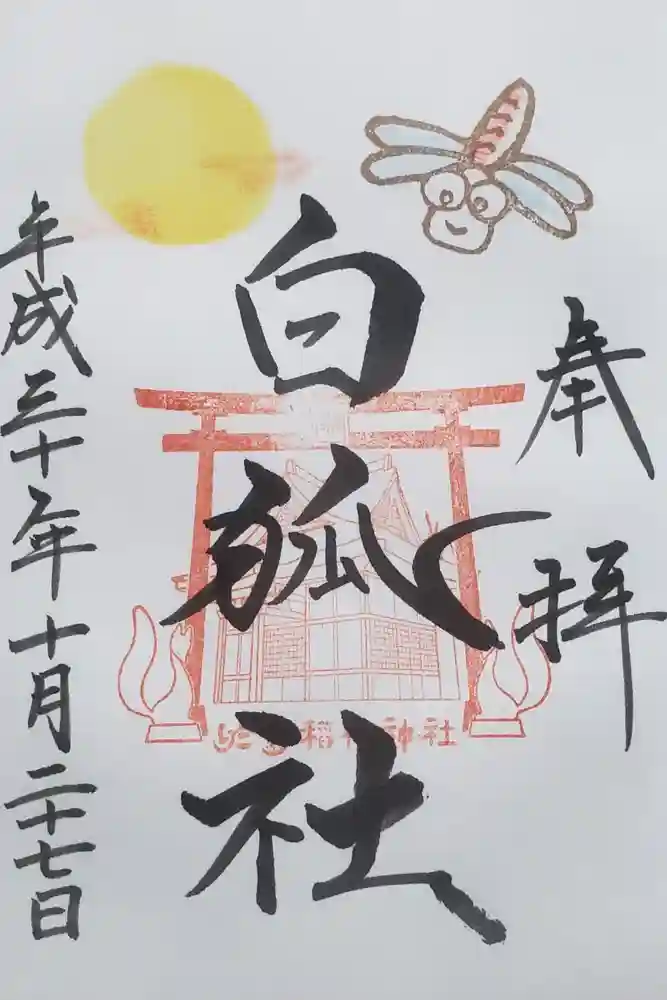 奉拝
白狐社
平成三十年十月二十七日
稲
神社